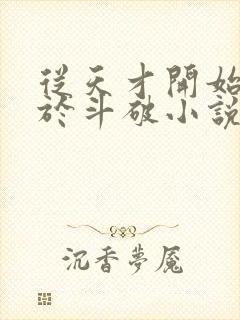 從天才開始
於斗破小說
沉香夢魘